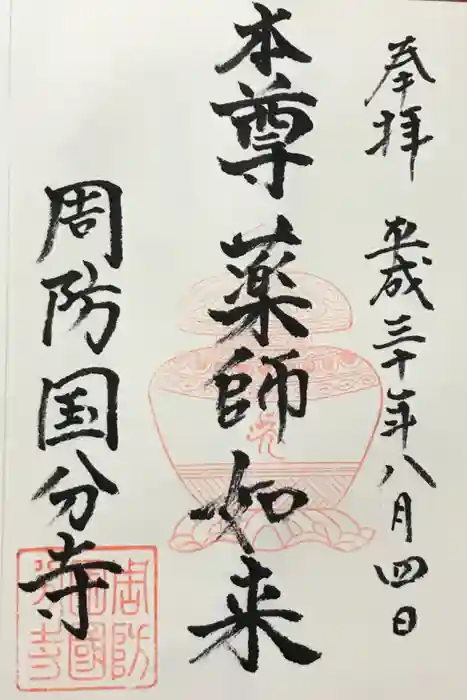 奉拝 平成三十年八月四日
本尊 薬師如来
周防国分寺
周防
國
分寺